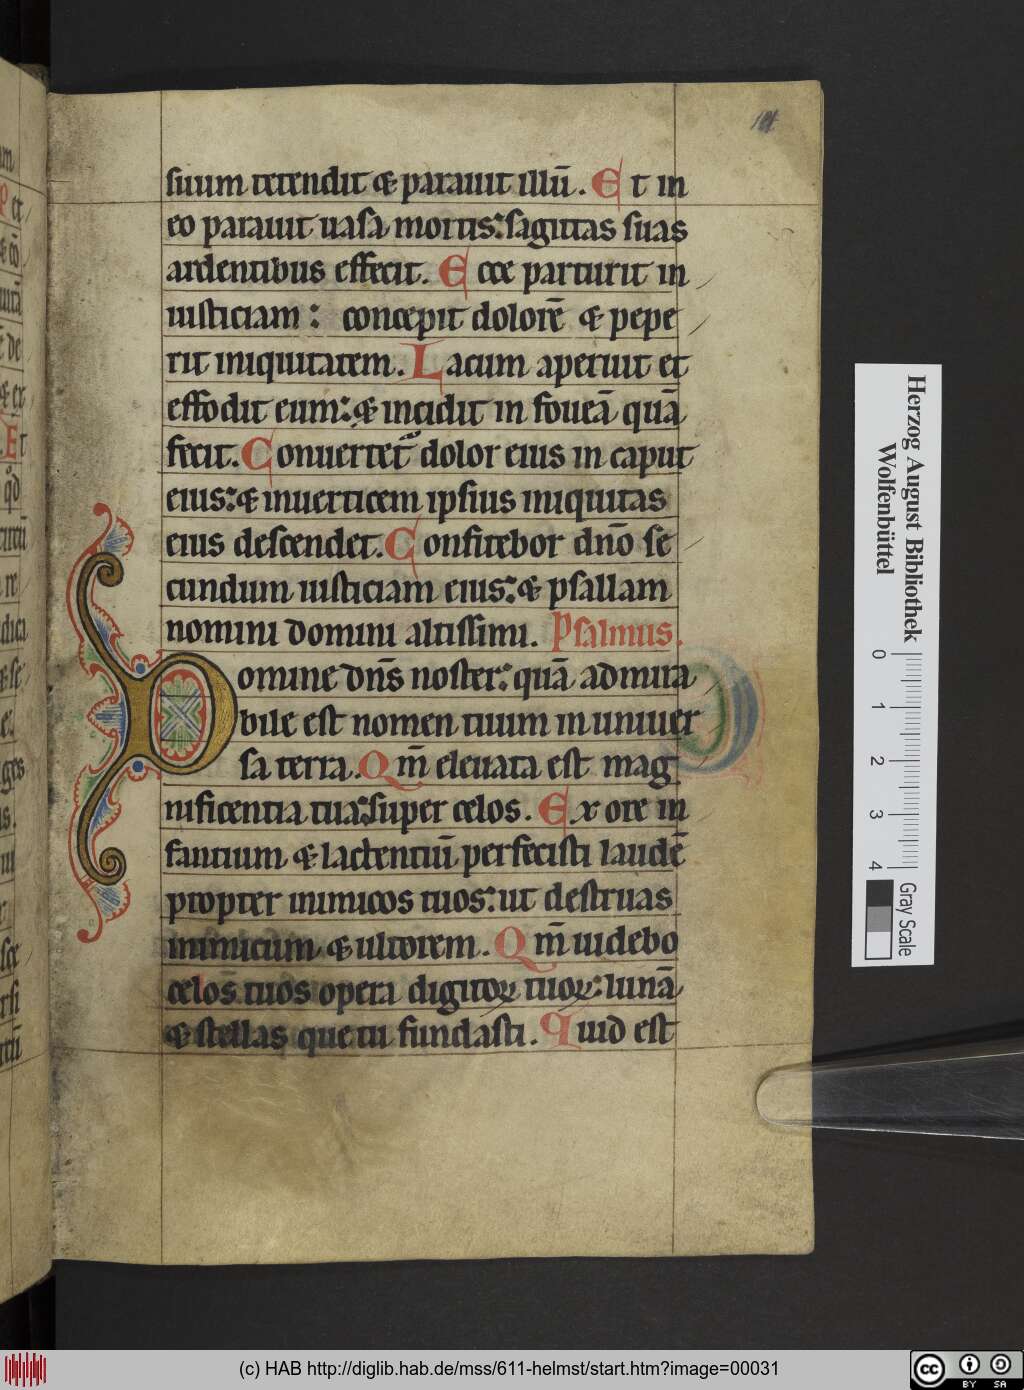 suum tetendit & parauit illū. Et in
eo parauit uasa mortis: sagittas suas
ardentibus effecit. Ecce parturit in
iusticiam: concepit dolorē & pepe
rit iniquitatem. Lacum aperuit et
effodit eum: & incidit in foueā quā
fecit. Conuertet᷑ dolor eius in caput
eius: & inuerticem ipsius iniquitas
eius descendet. Confitebor dn̄o se
cundum iusticiam eius: & psallam
nomini domini altissimi. Psalmus.
Domine dn̄s noster: quā admira
bile est nomen tuum in uniuer
sa terra. Qm̄ eleuata est mag
nificentia tua: super celos. Ex ore in
fantium & lactentiū perfecisti laudē
propter inimicos tuos: ut destruas
inimicum & ultorem. Qm̄ uidebo
celos tuos opera digitoꝝ tuoꝝ: lunā
& stellas que tu fundasti. Quid est
Herzog August Bibliothek
Wolfenbüttel
0
1
2
3
4
Gray Scale
(c) HAB http://diglib.hab.de/mss/611-helmst/start.htm?image=00031
cc BY SA